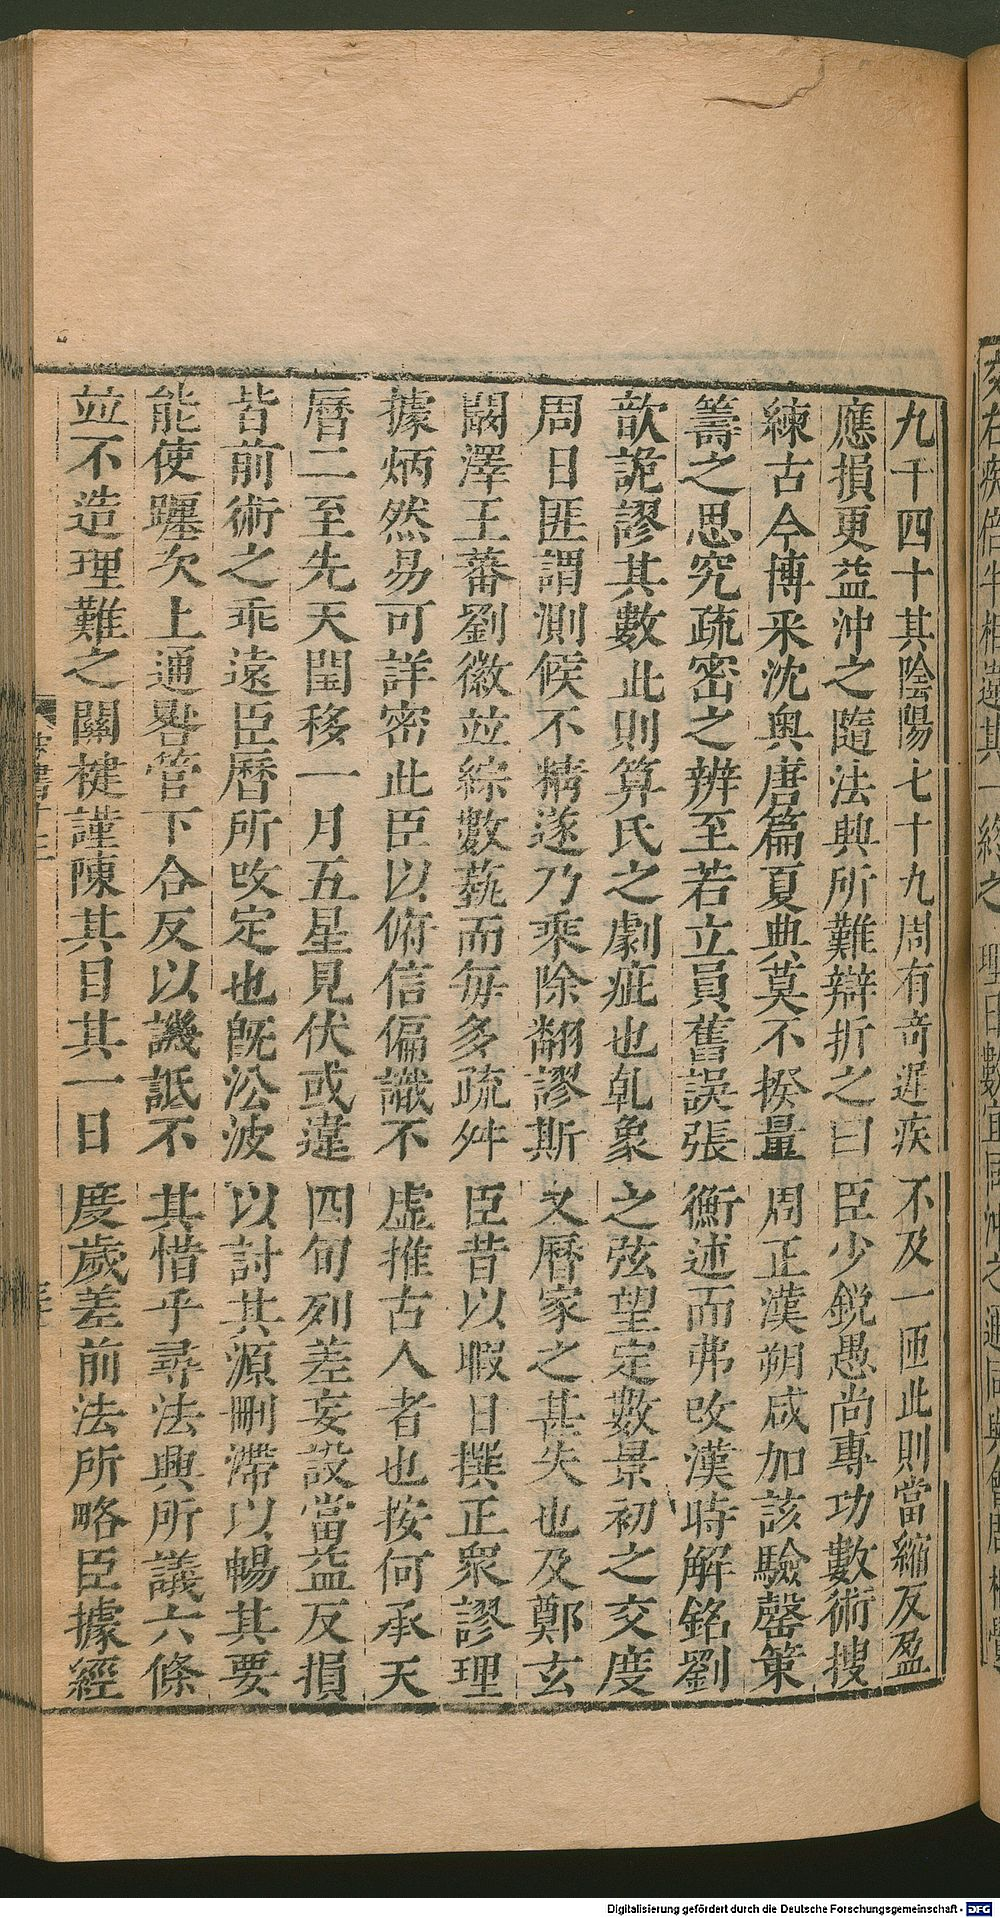 九千四十其陰陽七十九周有奇遲疾不及一匝此則當縮反盈
應損更益沖之隨法興所難辯折之曰臣少銳愚尚專功數術搜
練古今博釆沈奧唐篇夏典莫不揆量周正漢朔咸加該驗罄策
籌之思究疏密之辨至若立員舊誤張衡述而弗改漢時解銘劉
歆詭謬其數此則算氏之劇疵也乹象之弦望定數景初之交度
周日匪謂測候不精遂乃乘除翻謬斯又曆家之甚失也及鄭玄
闞澤王蕃劉徽並綜數藝而每多疏舛臣昔以暇日撰正衆謬理
據炳然易可詳密此臣以俯信偏識不虛推古人者也按何承天
曆二至先天閏移一月五星見伏或違四旬列差妄設當益反損
皆前術之乖遠臣曆所改定也旣㳂波以討其源刪滯以暢其要
能使躔次上通晷管下合反以譏詆不其惜乎尋法興所議六條
並不造理難之關楗謹陳其目其一日度歲差前法所略臣據經
Digitalisierung gefördert durch die Deutsche Forschungsgemeinschaft - DFG